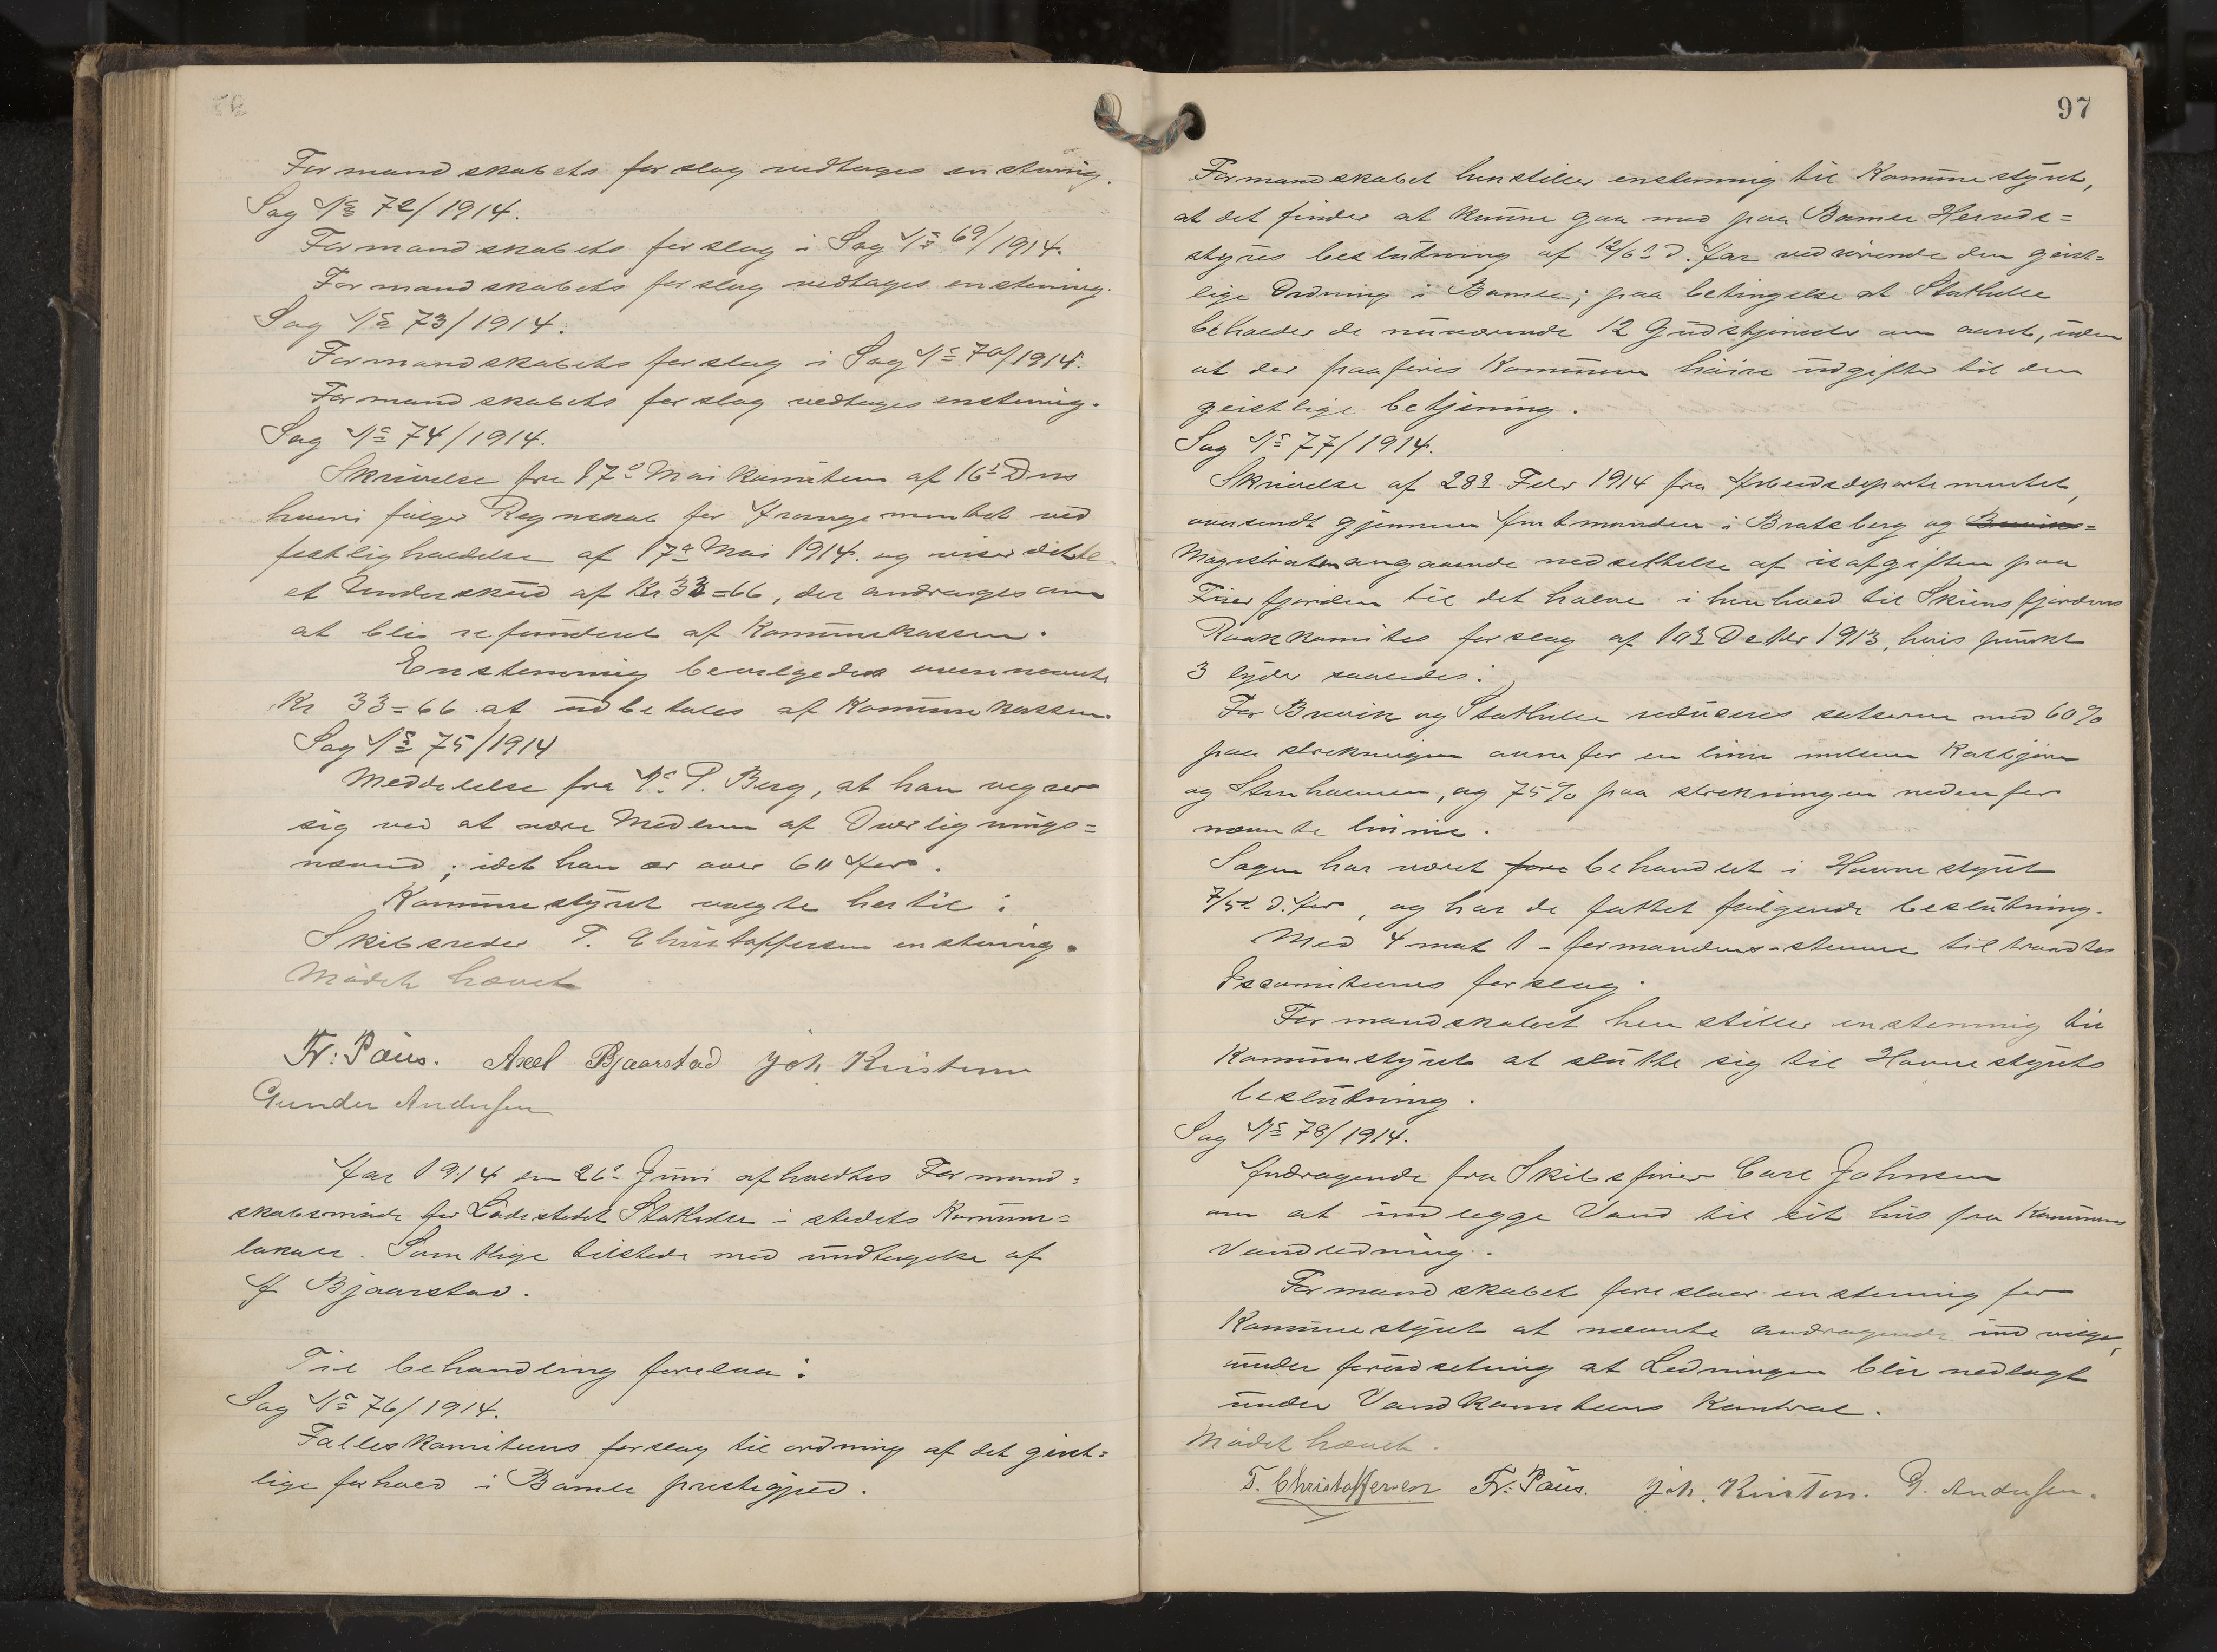 Formandskabets forslag vedtages enstemig.
Sag No 72/1914.
Formandskabets forslag i Sag No 69/1914.
Formandskabets forslag vedtages enstemig.
Sag No 73/1914.
Formandskabets forslag i Sag No 70/1914.
Formandskabets forslag vedtages enstemig.
Sag No 74/1914.
Skrivelse fra 17de Mai Komiteen af 16de Dns
hvori følger Regnskab for Arrangementet ved
festligholdelse af 17de Mai 1914. og viser dette
et Underskud af Kr 33=66, der andrages om
at bli refunderet af Kommunekassen.
Enstemmig bevilgedes ovennævnte
Kr 33=66 at udbetales af Kommunekassen.
Sag No 75/1914
Meddelelse fra N. P. Berg, at han vegrer
sig ved at være Medlem af Overlignings=
nævnd; idet han er over 60 Aar.
Kommunestyret valgte hertil:
Skibsreder T. Christoffersen enstemig.
Mødet hævet
Fr: Paus. Axel Bjaarstad Joh. Kristensen
Gunder Andersen
Aar 1914 den 26de Juni afholdtes Formand=
skabsmøde for Ladestedet Stathelle i stedets Kommune=
lokale. Samtlige tilstede med undtagelse af
A Bjaarstad.
Til behandling forelaa:
Sag No 76/1914.
Felleskomiteens forslag til ordning af det geist=
lige forhold i Bamle prestegjeld.
97
Formandskabet henstiller enstemmig til Kommunestyret,
at det finder at kunne gaa med paa Bamle Herreds=
styres beslutning af 12/6 d. Aar vedrørende den geist=
lige Ordning i Bamle; paa betingelse at Stathelle
beholder de nuværende 12 Gudstjenester om aaret, uden
at der paaføres Kommunen høiere udgifter til den
geistlige betjening.
Sag No 77/1914.
Skrivelse af 28de Febr 1914 fra Arbeidsdepartementet,
oversendt gjennem Amtmanden i Bratsberg og Breviks=
Magistraten angaaende nedsettelse af isafgiften paa
Frierfjorden til det halve i henhold til Skiensfjordens
Raakkomites forslag af 10de Dekbr 1913, hvis punkt
3 lyder saaledes:
For Brevik og Stathelle reduseres satserne med 60%
paa strekningen ovenfor en linie mellem Kalbjørn
og Stenholmen, og 75% paa strekningen nedenfor
nævnte linnie.
Sagen har været fore behandlet i Havnestyret
7/5 d. Aar, og har de fattet følgende beslutning.
Med 4 mot 1 - formandens - stemme tiltraadtes
Iskomiteens forslag.
Formandskabet henstiller enstemmig til
Kommunestyret at slutte sig til Havnestyrets
beslutning.
Sag No 78/1914.
Andragende fra Skibsfører Carl Johnsen
om at indlegge Vand til sit hus fra Kommunens
Vandledning.
Formandskabet foreslaar enstemig for
Kommunestyret at nævnte andragende indvilges,
under forudsetning at Ledningen blir nedlagt
under Vandkomiteens Kontrol.
Mødet hævet.
T. Christoffersen Fr: Paus. Joh. Kristensen. G. Andersen.